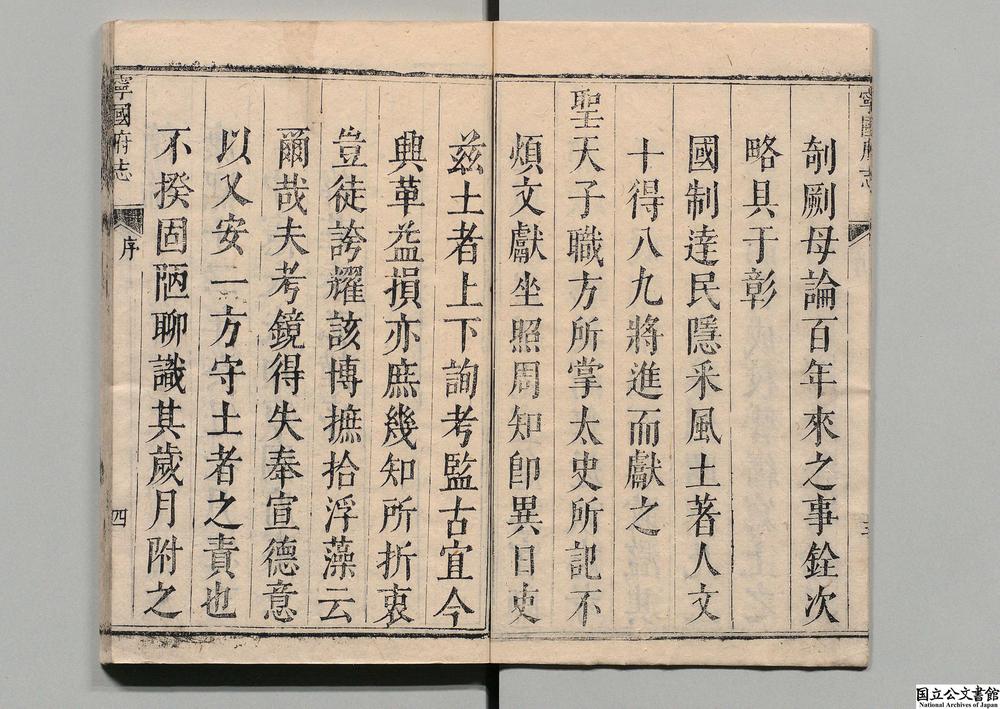 寧國府志
剞劂毋論百年來之事銓次
略具于彰
國制達民隱釆風土著人文
十得八九將進而獻之
聖天子職方所掌太史所記不
煩文獻坐照周知卽異日吏
兹土者上下詢考監古宜今
興革益損亦庶幾知所折衷
豈徒誇耀該博摭拾浮藻云
爾哉夫考鏡得失奉宣德意
以乂安一方守土者之責也
不揆固陋聊識其歲月附之
寧國府志
序
四
国立公文書館
National Archives of Japan